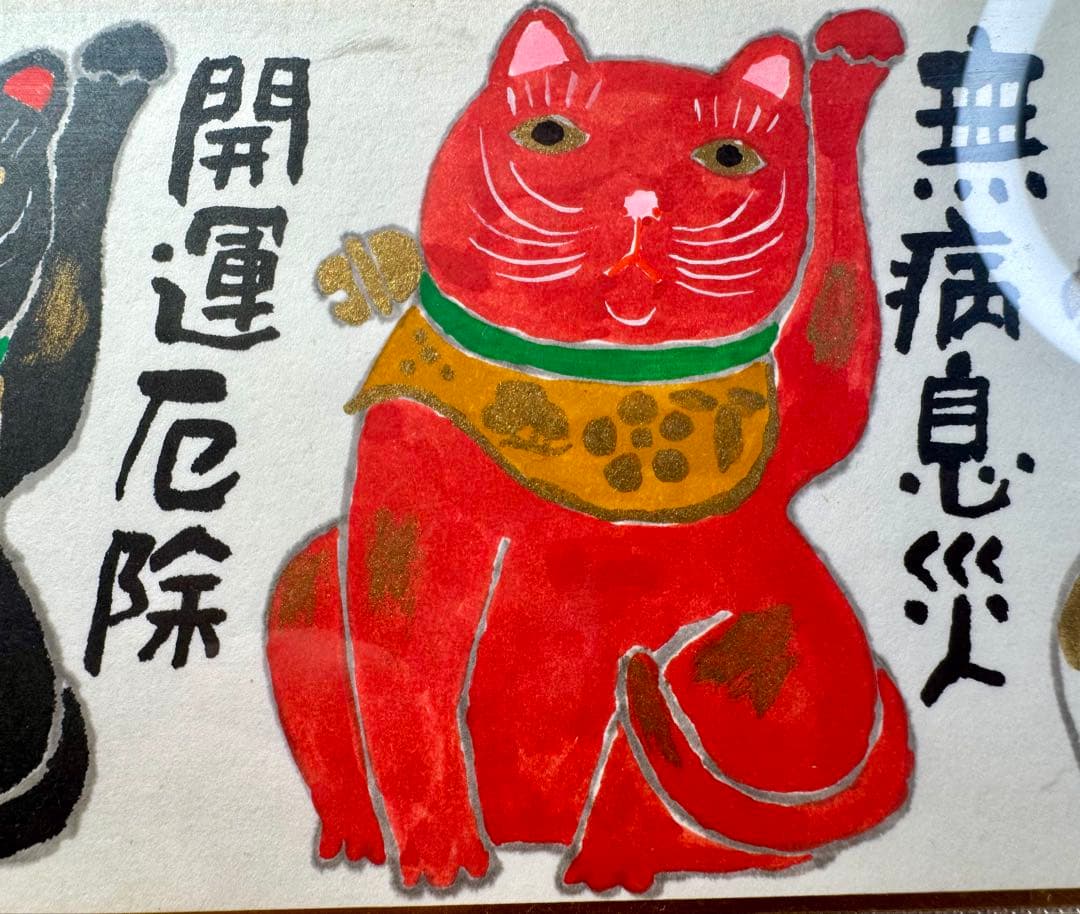 無病息災
開運厄除